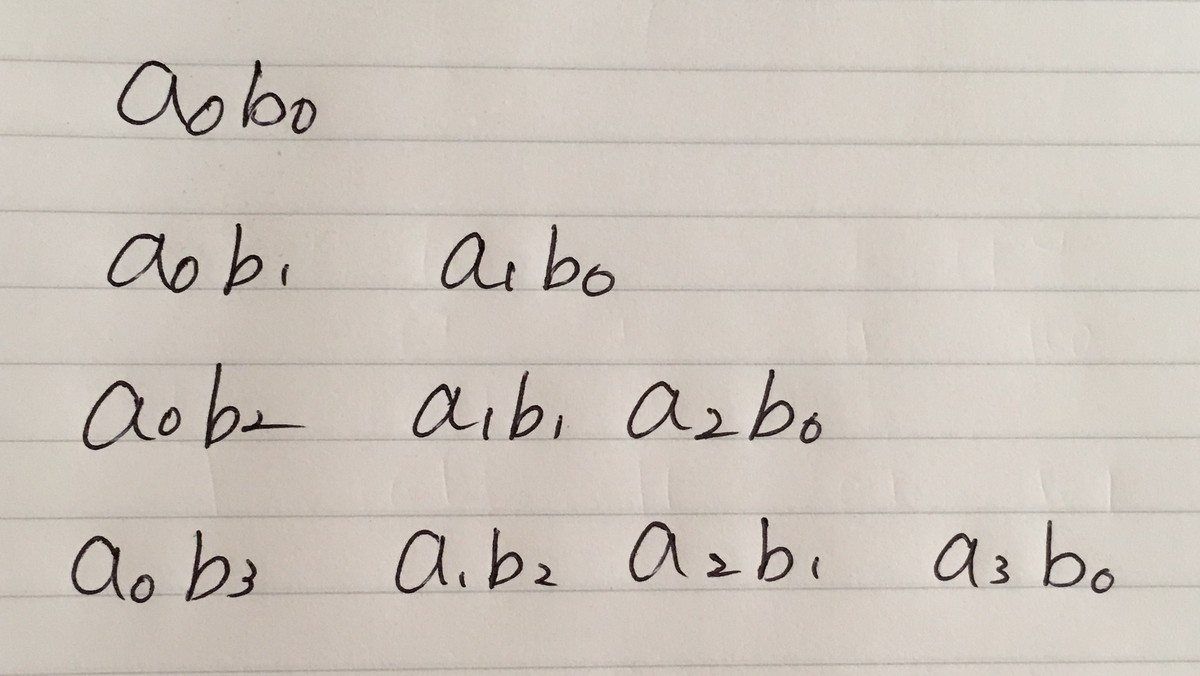 a₀b₀
a₀b₁ a₁b₀
a₀b₂ a₁b₁ a₂b₀
a₀b₃ a₁b₂ a₂b₁ a₃b₀